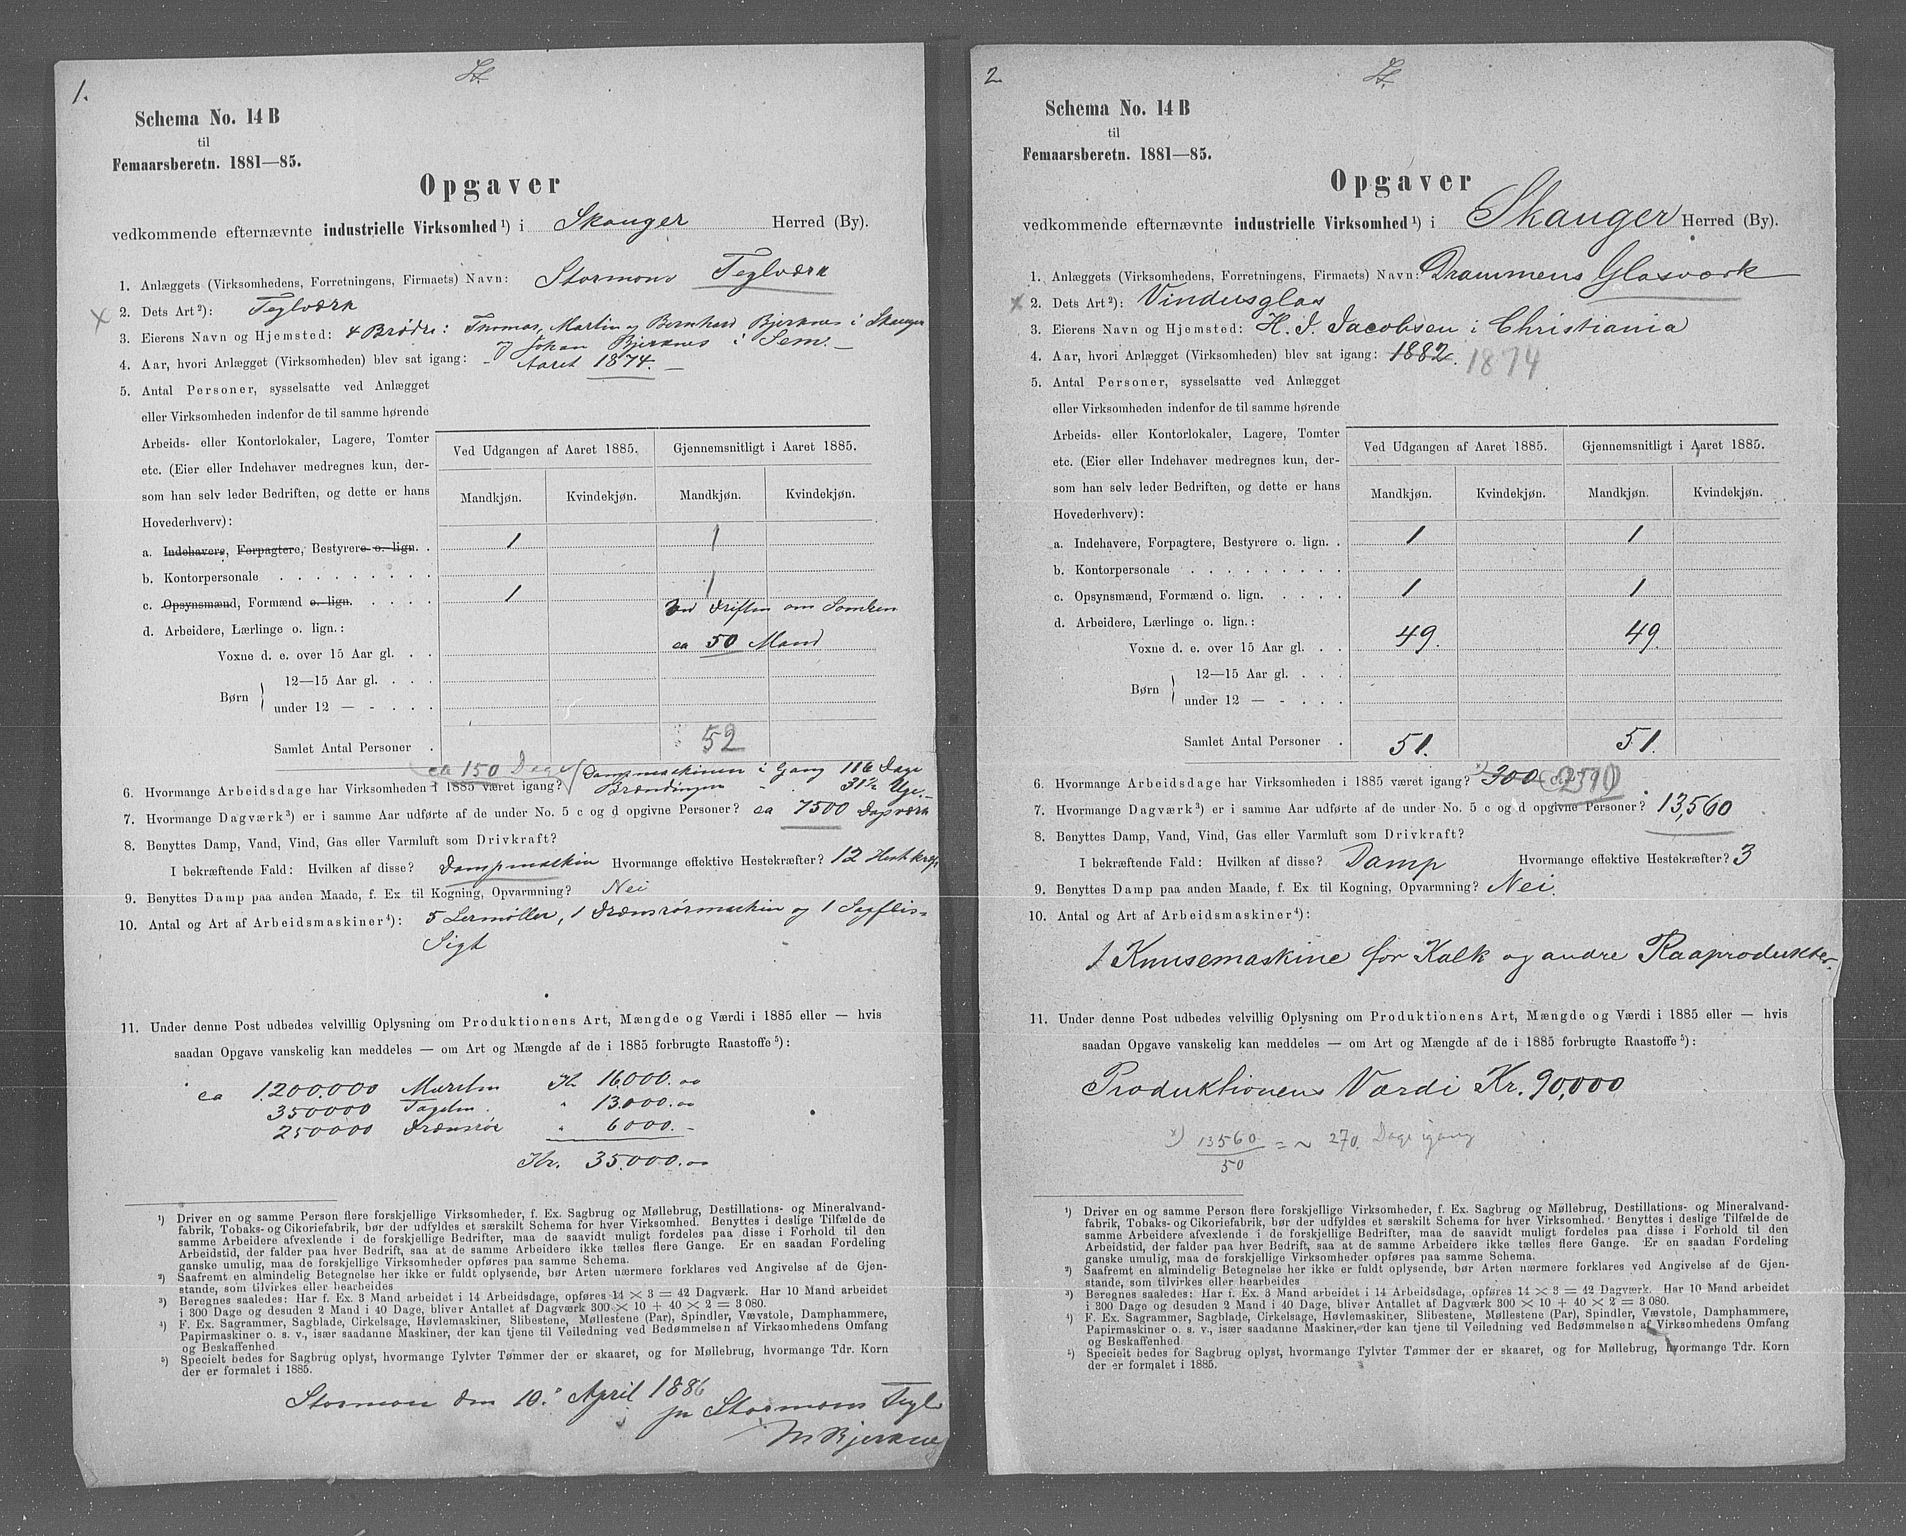 1.
Schema No. 14 B
til
Femaarsberetn. 1881—85.
Opgaver
vedkommende efternævnte industrielle Virksomhed ¹) i Skouger Herred (By).
1. Anlæggets (Virksomhedens, Forretningens, Firmaets) Navn: Stormons Teglværk
2. Dets Art ²): Teglværk
3. Eierens Navn og Hjemsted: 4 Brødre: Thomas, Martin og Bernhard Bjerknes i Skouger
Johan Bjerknes i Sem. —
4. Aar, hvori Anlægget (Virksomheden) blev sat igang: - Aaret 1874. —
5. Antal Personer, sysselsatte ved Anlægget
eller Virksomheden indenfor de til samme hørende
Arbeids- eller Kontorlokaler, Lagere, Tomter
etc. (Eier eller Indehaver medregnes kun, der-
som han selv leder Bedriften, og dette er hans
Hovederhverv):
Ved Udgangen af Aaret 1885. Gjennemsnitligt i Aaret 1885.
Mandkjøn. Kvindekjøn. Mandkjøn. Kvindekjøn.
a. Indehavere, Forpagtere, Bestyrere o. lign. . 1 1
b. Kontorpersonale . . . . . . . . .
c. Opsynsmænd, Formænd o. lign. . . . . 1 1
d. Arbeidere, Lærlinge o. lign.: ved Driften om Somren
Voxne d. e. over 15 Aar gl. . . ca 50 Mand
Børn
12—15 Aar gl. . . .
under 12 — - . . .
Samlet Antal Personer . 52
ca 150 Dage
6. Hvormange Arbeidsdage har Virksomheden i 1885 været igang? Dampmaskinen i Gang 116 Dage
Brændingen " 31½ Uge. —
7. Hvormange Dagværk ³) er i samme Aar udførte af de under No. 5 c og d opgivne Personer? ca 7500 Dagværk
8. Benyttes Damp, Vand, Vind, Gas eller Varmluft som Drivkraft?
I bekræftende Fald: Hvilken af disse? Dampmaskin Hvormange effektive Hestekræfter? 12 Hestekræft
9. Benyttes Damp paa anden Maade, f. Ex til Kogning, Opvarmning? Nei
10. Antal og Art af Arbeidsmaskiner ⁴): 5 Lermøller, 1 Drænsrørmaskin og 1 Sagflis-
Sigt
11. Under denne Post udbedes velvillig Oplysning om Produktionens Art, Mængde og Værdi i 1885 eller — hvis
saadan Opgave vanskelig kan meddeles — om Art og Mængde af de i 1885 forbrugte Raastoffe ⁵):
ca 1200.000 Mursten Kr 16.000.00
350000 Tagsten " 13.000.00
250000 Drænsrør " 6000. -
Kr. 35.000.00
¹) Driver en og samme Person flere forskjellige Virksomheder, f. Ex. Sagbrug og Møllebrug, Destillations- og Mineralvand-
fabrik, Tobaks- og Cikoriefabrik, bør der udfyldes et særskilt Schema for hver Virksomhed. Benyttes i deslige Tilfælde de
samme Arbeidere afvexlende i de forskjellige Bedrifter, maa de saavidt muligt fordeles paa disse i Forhold til den
Arbeidstid, der falder paa hver Bedrift, saa at de samme Arbeidere ikke tælles flere Gange. Er en saadan Fordeling
ganske umulig, maa de forskjellige Virksomheder opføres paa samme Schema.
²) Saafremt en almindelig Betegnelse her ikke er fuldt oplysende, bør Arten nærmere forklares ved Angivelse af de Gjen-
stande, som tilvirkes eller bearbeides
³) Beregnes saaledes: Har f. Ex. 3 Mand arbeidet i 14 Arbeidsdage, opføres 14 × 3 = 42 Dagværk. Har 10 Mand arbeidet
i 300 Dage og desuden 2 Mand i 40 Dage, bliver Antallet af Dagværk 300 × 10 + 40 × 2 = 3 080.
⁴) F. Ex. Sagrammer, Sagblade, Cirkelsage, Høvlemaskiner, Slibestene, Møllestene (Par), Spindler, Vævstole, Damphammere,
Papirmaskiner o. s. v., især saadanne Maskiner, der kan tjene til Veiledning ved Bedømmelsen af Virksomhedens Omfang
og Beskaffenhed
⁵) Specielt bedes for Sagbrug oplyst, hvormange Tylvter Tømmer der er skaaret, og for Møllebrug, hvormange Tdr. Korn
der er formalet i 1885.
Stormon den 10. April 1886
pr Stormons Tegl
M Bjerknes
2.
Schema No. 14 B
til
Femaarsberetn. 1881—85.
Opgaver
vedkommende efternævnte industrielle Virksomhed ¹) i Skauger Herred (By).
1. Anlæggets (Virksomhedens, Forretningens, Firmaets) Navn: Drammens Glasværk
2. Dets Art ²): Vindusglas
3. Eierens Navn og Hjemsted: H. J. Jacobsen i Christiania
4. Aar, hvori Anlægget (Virksomheden) blev sat igang: 1882. 1874
5. Antal Personer, sysselsatte ved Anlægget
eller Virksomheden indenfor de til samme hørende
Arbeids- eller Kontorlokaler, Lagere, Tomter
etc. (Eier eller Indehaver medregnes kun, der-
som han selv leder Bedriften, og dette er hans
Hovederhverv):
Ved Udgangen af Aaret 1885. Gjennemsnitligt i Aaret 1885.
Mandkjøn. Kvindekjøn. Mandkjøn. Kvindekjøn.
a. Indehavere, Forpagtere, Bestyrere o. lign. . 1 1
b. Kontorpersonale . . . . . . . . .
c. Opsynsmænd, Formænd o. lign. . . . . 1 1
d. Arbeidere, Lærlinge o. lign.:
Voxne d. e. over 15 Aar gl. . . 49. 49.
Børn
12—15 Aar gl. . . .
under 12 — - . . .
Samlet Antal Personer . 51. 51.
6. Hvormange Arbeidsdage har Virksomheden i 1885 været igang? ˣ) 300
7. Hvormange Dagværk ³) er i samme Aar udførte af de under No. 5 c og d opgivne Personer? 13,560
8. Benyttes Damp, Vand, Vind, Gas eller Varmluft som Drivkraft?
I bekræftende Fald: Hvilken af disse? Damp Hvormange effektive Hestekræfter? 3
9. Benyttes Damp paa anden Maade, f. Ex til Kogning, Opvarmning? Nei.
10. Antal og Art af Arbeidsmaskiner ⁴):
1 Knusemaskine for Kalk og andre Raaprodukter.
11. Under denne Post udbedes velvillig Oplysning om Produktionens Art, Mængde og Værdi i 1885 eller — hvis
saadan Opgave vanskelig kan meddeles — om Art og Mængde af de i 1885 forbrugte Raastoffe ⁵):
Produktionens Værdi Kr. 90,000
ˣ) 13560/50 = ~ 270. Dage igang
¹) Driver en og samme Person flere forskjellige Virksomheder, f. Ex. Sagbrug og Møllebrug, Destillations- og Mineralvand-
fabrik, Tobaks- og Cikoriefabrik, bør der udfyldes et særskilt Schema for hver Virksomhed. Benyttes i deslige Tilfælde de
samme Arbeidere afvexlende i de forskjellige Bedrifter, maa de saavidt muligt fordeles paa disse i Forhold til den
Arbeidstid, der falder paa hver Bedrift, saa at de samme Arbeidere ikke tælles flere Gange. Er en saadan Fordeling
ganske umulig, maa de forskjellige Virksomheder opføres paa samme Schema.
²) Saafremt en almindelig Betegnelse her ikke er fuldt oplysende, bør Arten nærmere forklares ved Angivelse af de Gjen-
stande, som tilvirkes eller bearbeides
³) Beregnes saaledes: Har f. Ex. 3 Mand arbeidet i 14 Arbeidsdage, opføres 14 × 3 = 42 Dagværk. Har 10 Mand arbeidet
i 300 Dage og desuden 2 Mand i 40 Dage, bliver Antallet af Dagværk 300 × 10 + 40 × 2 = 3 080.
⁴) F. Ex. Sagrammer, Sagblade, Cirkelsage, Høvlemaskiner, Slibestene, Møllestene (Par), Spindler, Vævstole, Damphammere,
Papirmaskiner o. s. v., især saadanne Maskiner, der kan tjene til Veiledning ved Bedømmelsen af Virksomhedens Omfang
og Beskaffenhed
⁵) Specielt bedes for Sagbrug oplyst, hvormange Tylvter Tømmer der er skaaret, og for Møllebrug, hvormange Tdr. Korn
der er formalet i 1885.